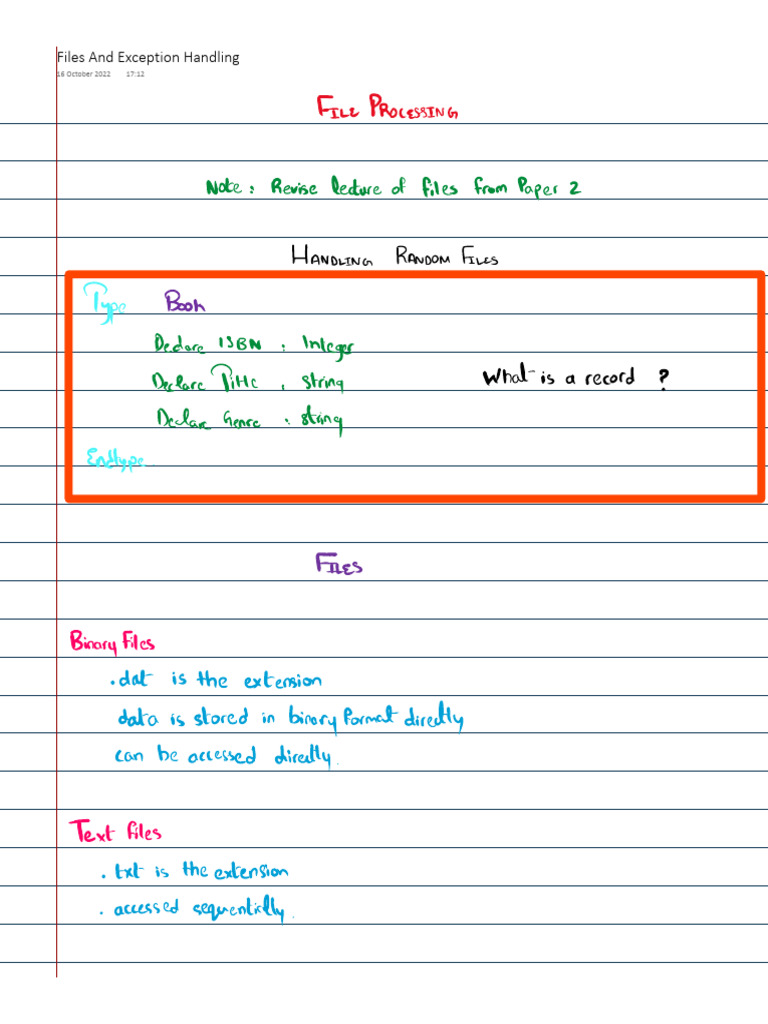 Files And Exception Handling
16 October 2022 17:12
FILE PROCESSING
Note: Revise lecture of files from Paper 2
HANDLING RANDOM FILES
Type Book
Declare ISBN : Integer
Declare Title : string
What is a record ?
Declare Genre : string
Endtype
FILES
Binary Files
.dat is the extension
data is stored in binary format directly
can be accessed directly.
Text files
. txt is the extension
. accessed sequentially.